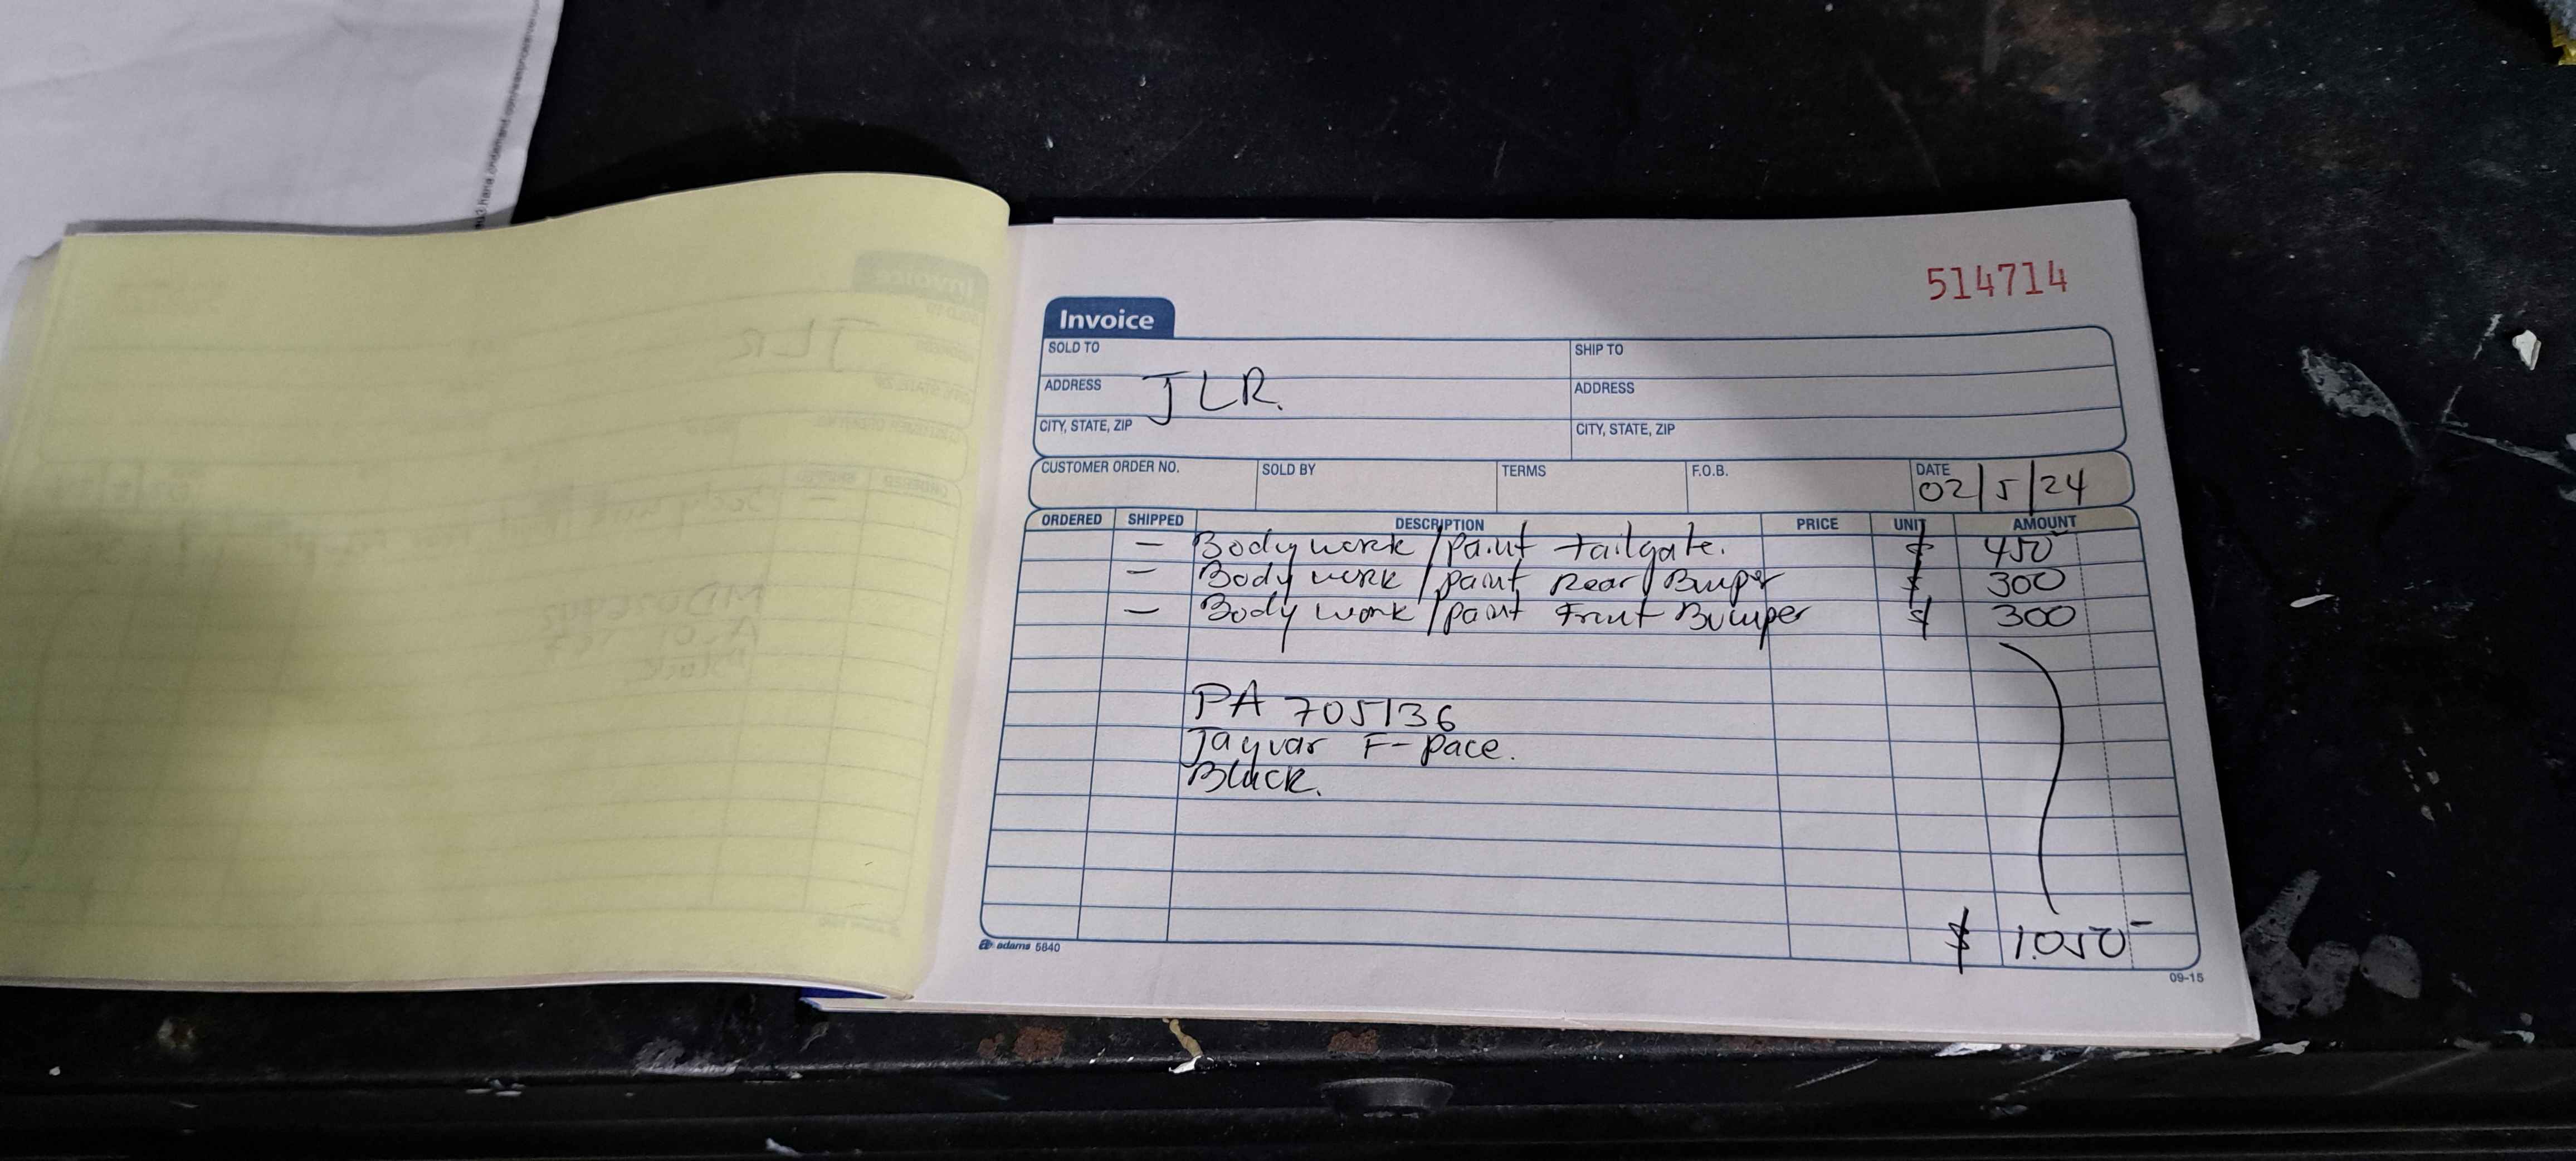 514714
Invoice
SOLD TO
SHIP TO
ADDRESS
JLR.
ADDRESS
CITY, STATE, ZIP
CITY, STATE, ZIP
CUSTOMER ORDER NO. SOLD BY TERMS F.O.B. DATE
02/5/24
ORDERED SHIPPED DESCRIPTION PRICE UNIT AMOUNT
— Body work / paint tailgate. $ 450
— Body work / paint Rear Bumper $ 300
— Body work / paint Front Bumper $ 300
PA 705136
Jaguar F-pace.
Black.
$ 1.050-
adams 5840
09-15